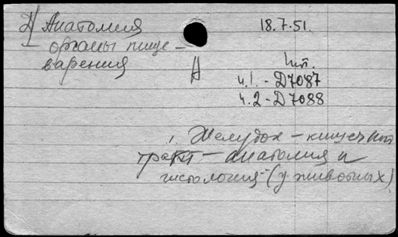 2) Анатомия
органы пище-
варения
18.7.51.
А
ч.1. - D7087
ч.2 - D7088
Желудок - кишечный
тракт - анатомия и
гистология - (у животных)